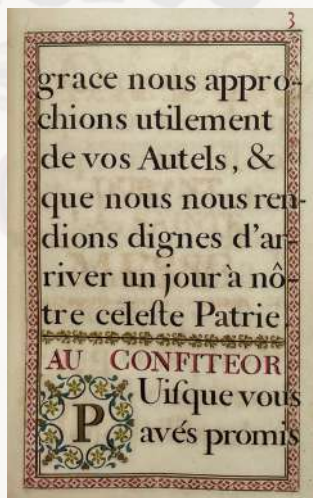 3
grace nous appro-
chions utilement
de vos Autels, &
que nous nous ren-
dions dignes d'ar-
river un jour à nô-
tre celeſte Patrie.
AU CONFITEOR
PUiſque vous
avés promis